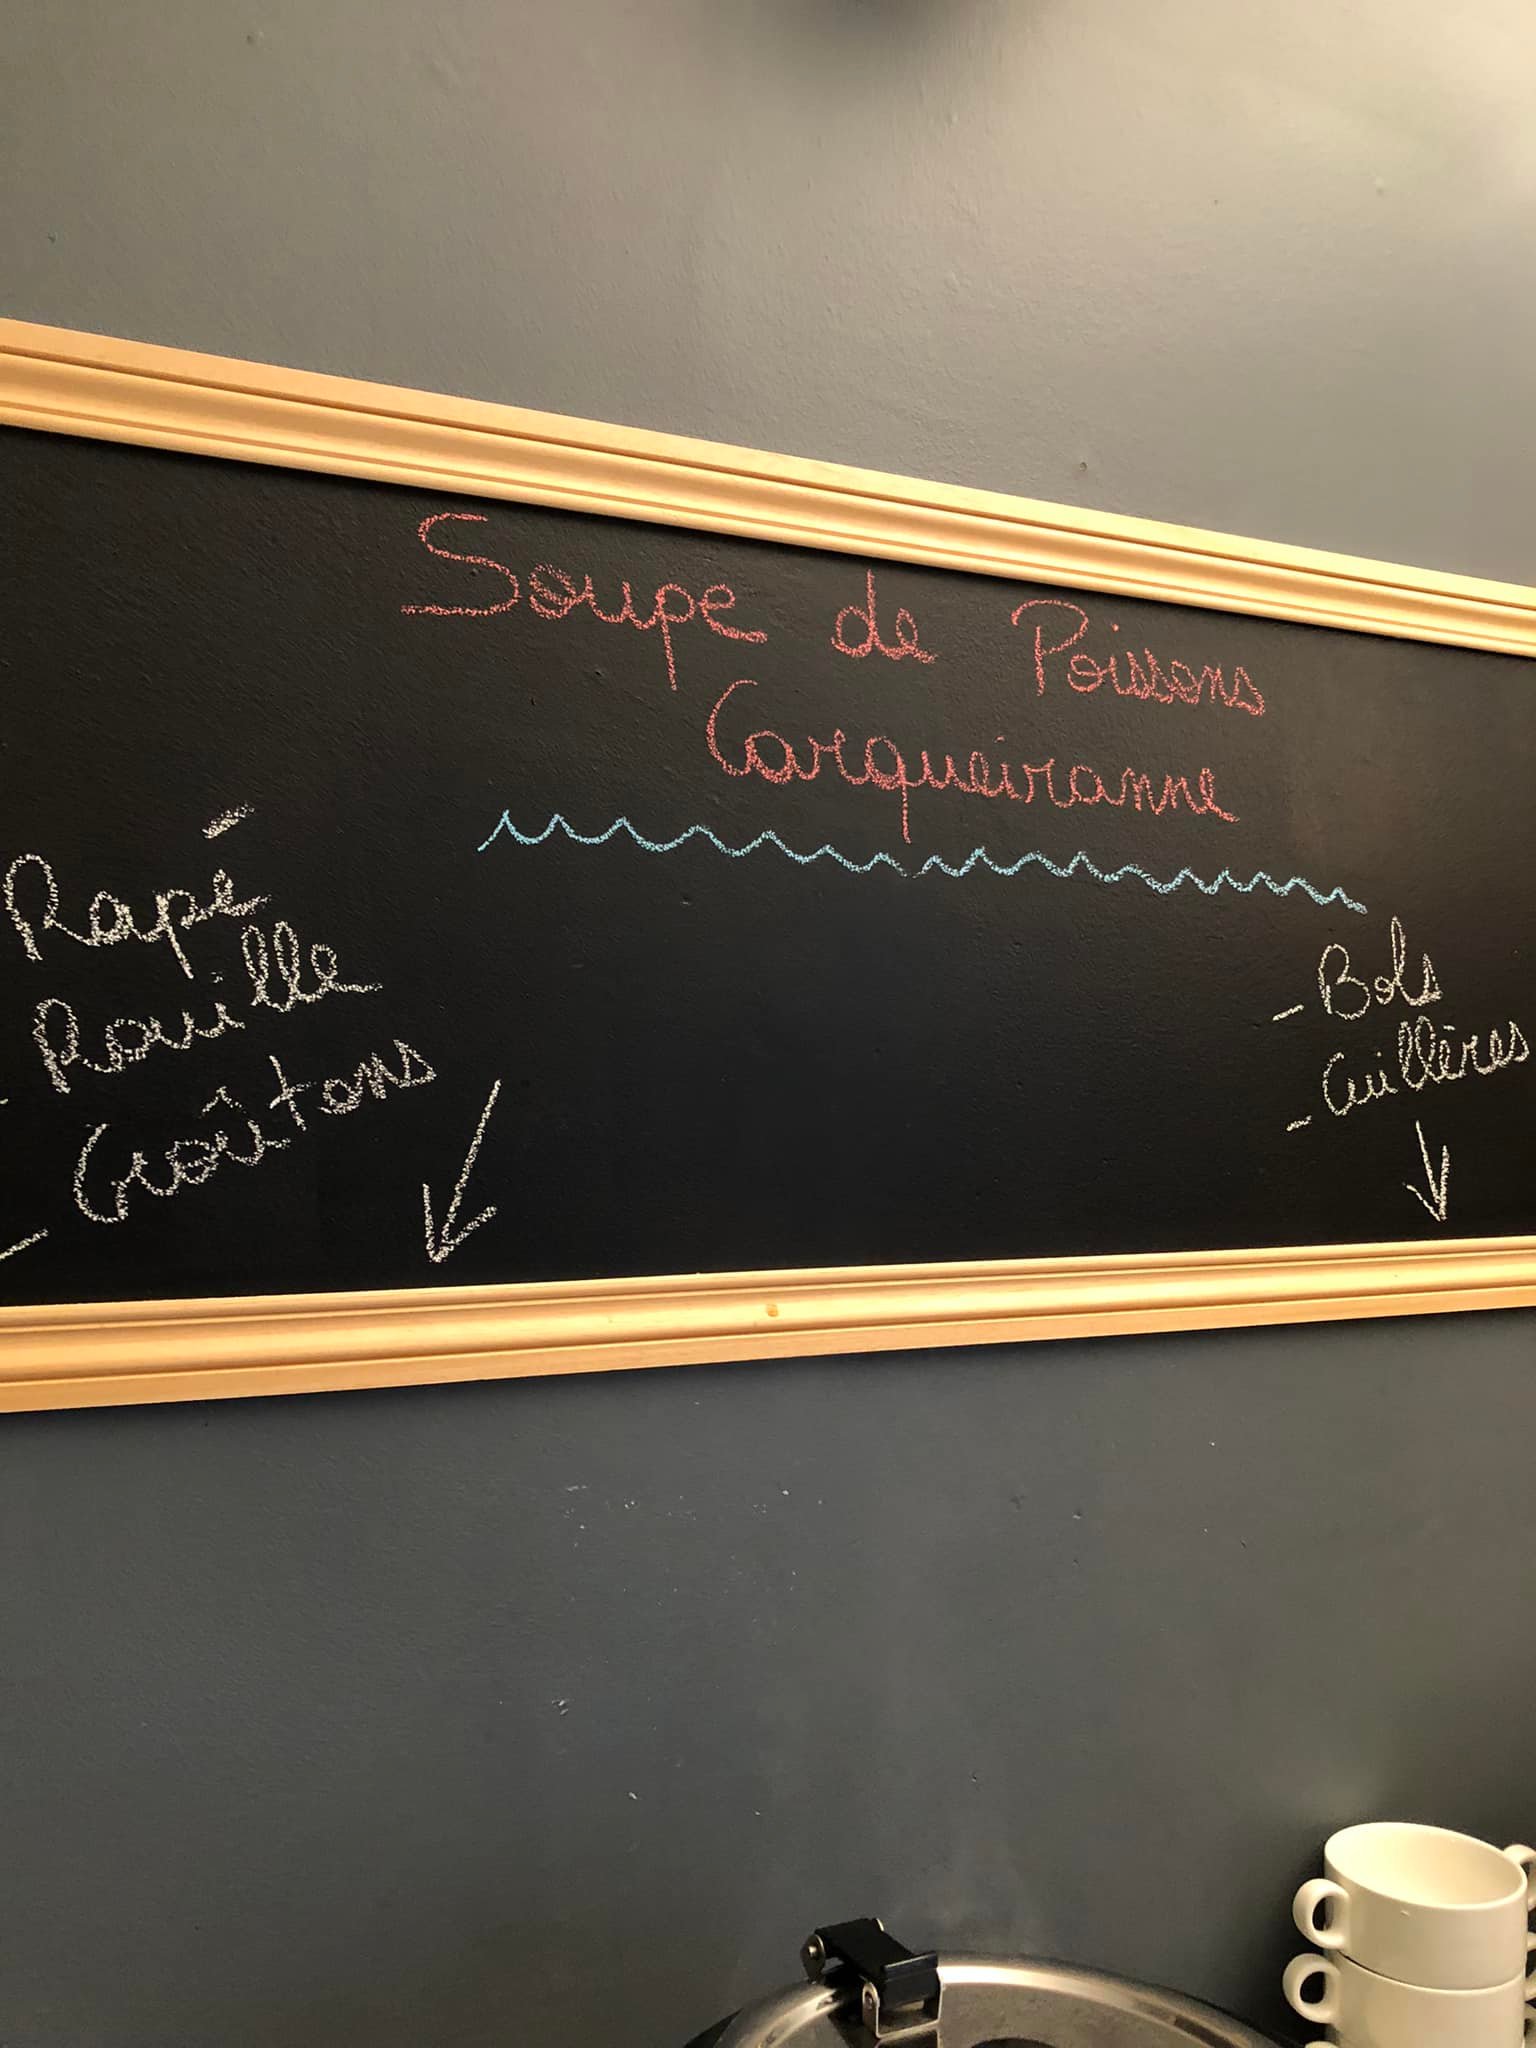 Soupe de Poissons
Carqueiranne
- Rapé
- Rouille
- Croûtons
- Bols
- Cuillères